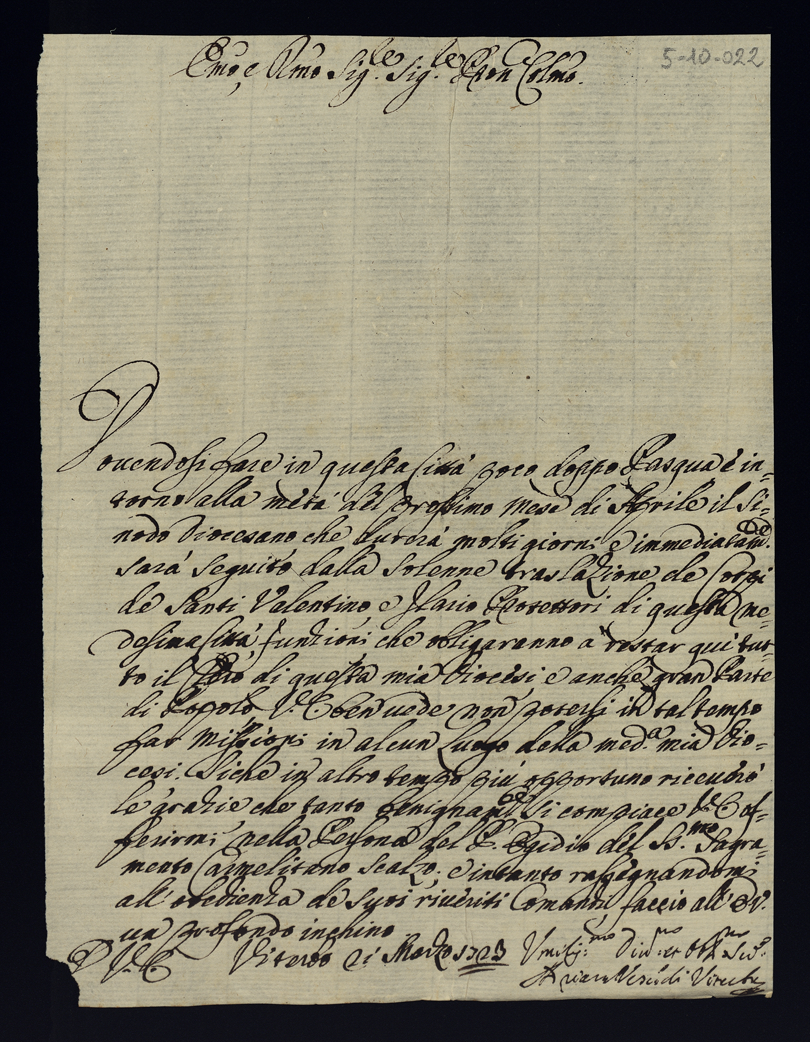 5-10-022
Emo, e Rmo Sig.re Sig.re Pron Colmo.
Dovendosi fare in questa Città poco doppo Pasqua è in-
torno alla metà del prossimo mese di Aprile il Si-
nodo Diocesano che durerà molti giorni e immediatam.te
sarà seguito dalla solenne traslazione de Corpi
de Santi Valentino, e Ilario Protettori di questa me-
desima Città funzioni che obligaranno a restar qui tut-
to il Clero di questa mia Diocesi e anche gran Parte
di Popolo V. E. ben vede non potersi in tal tempo
far Missioni in alcun Luogo della med.a mia Dio-
cesi. Siche in altro tempo più opportuno riceverò
le grazie che tanto benignam.te si compiace V. E. of-
ferirmi nella Persona del P. Egidio del SS.mo Sagra-
mento Carmelitano Scalzo; e intanto rassegnandomi
all' obedienza de suoi riveriti Comandi faccio all' E. V.
un profondo inchino
D V. E. Viterbo 21 Marzo 1723 Umilis.mo Div.mo et Obb.mo Ser.
A Vesc. di Viterbo